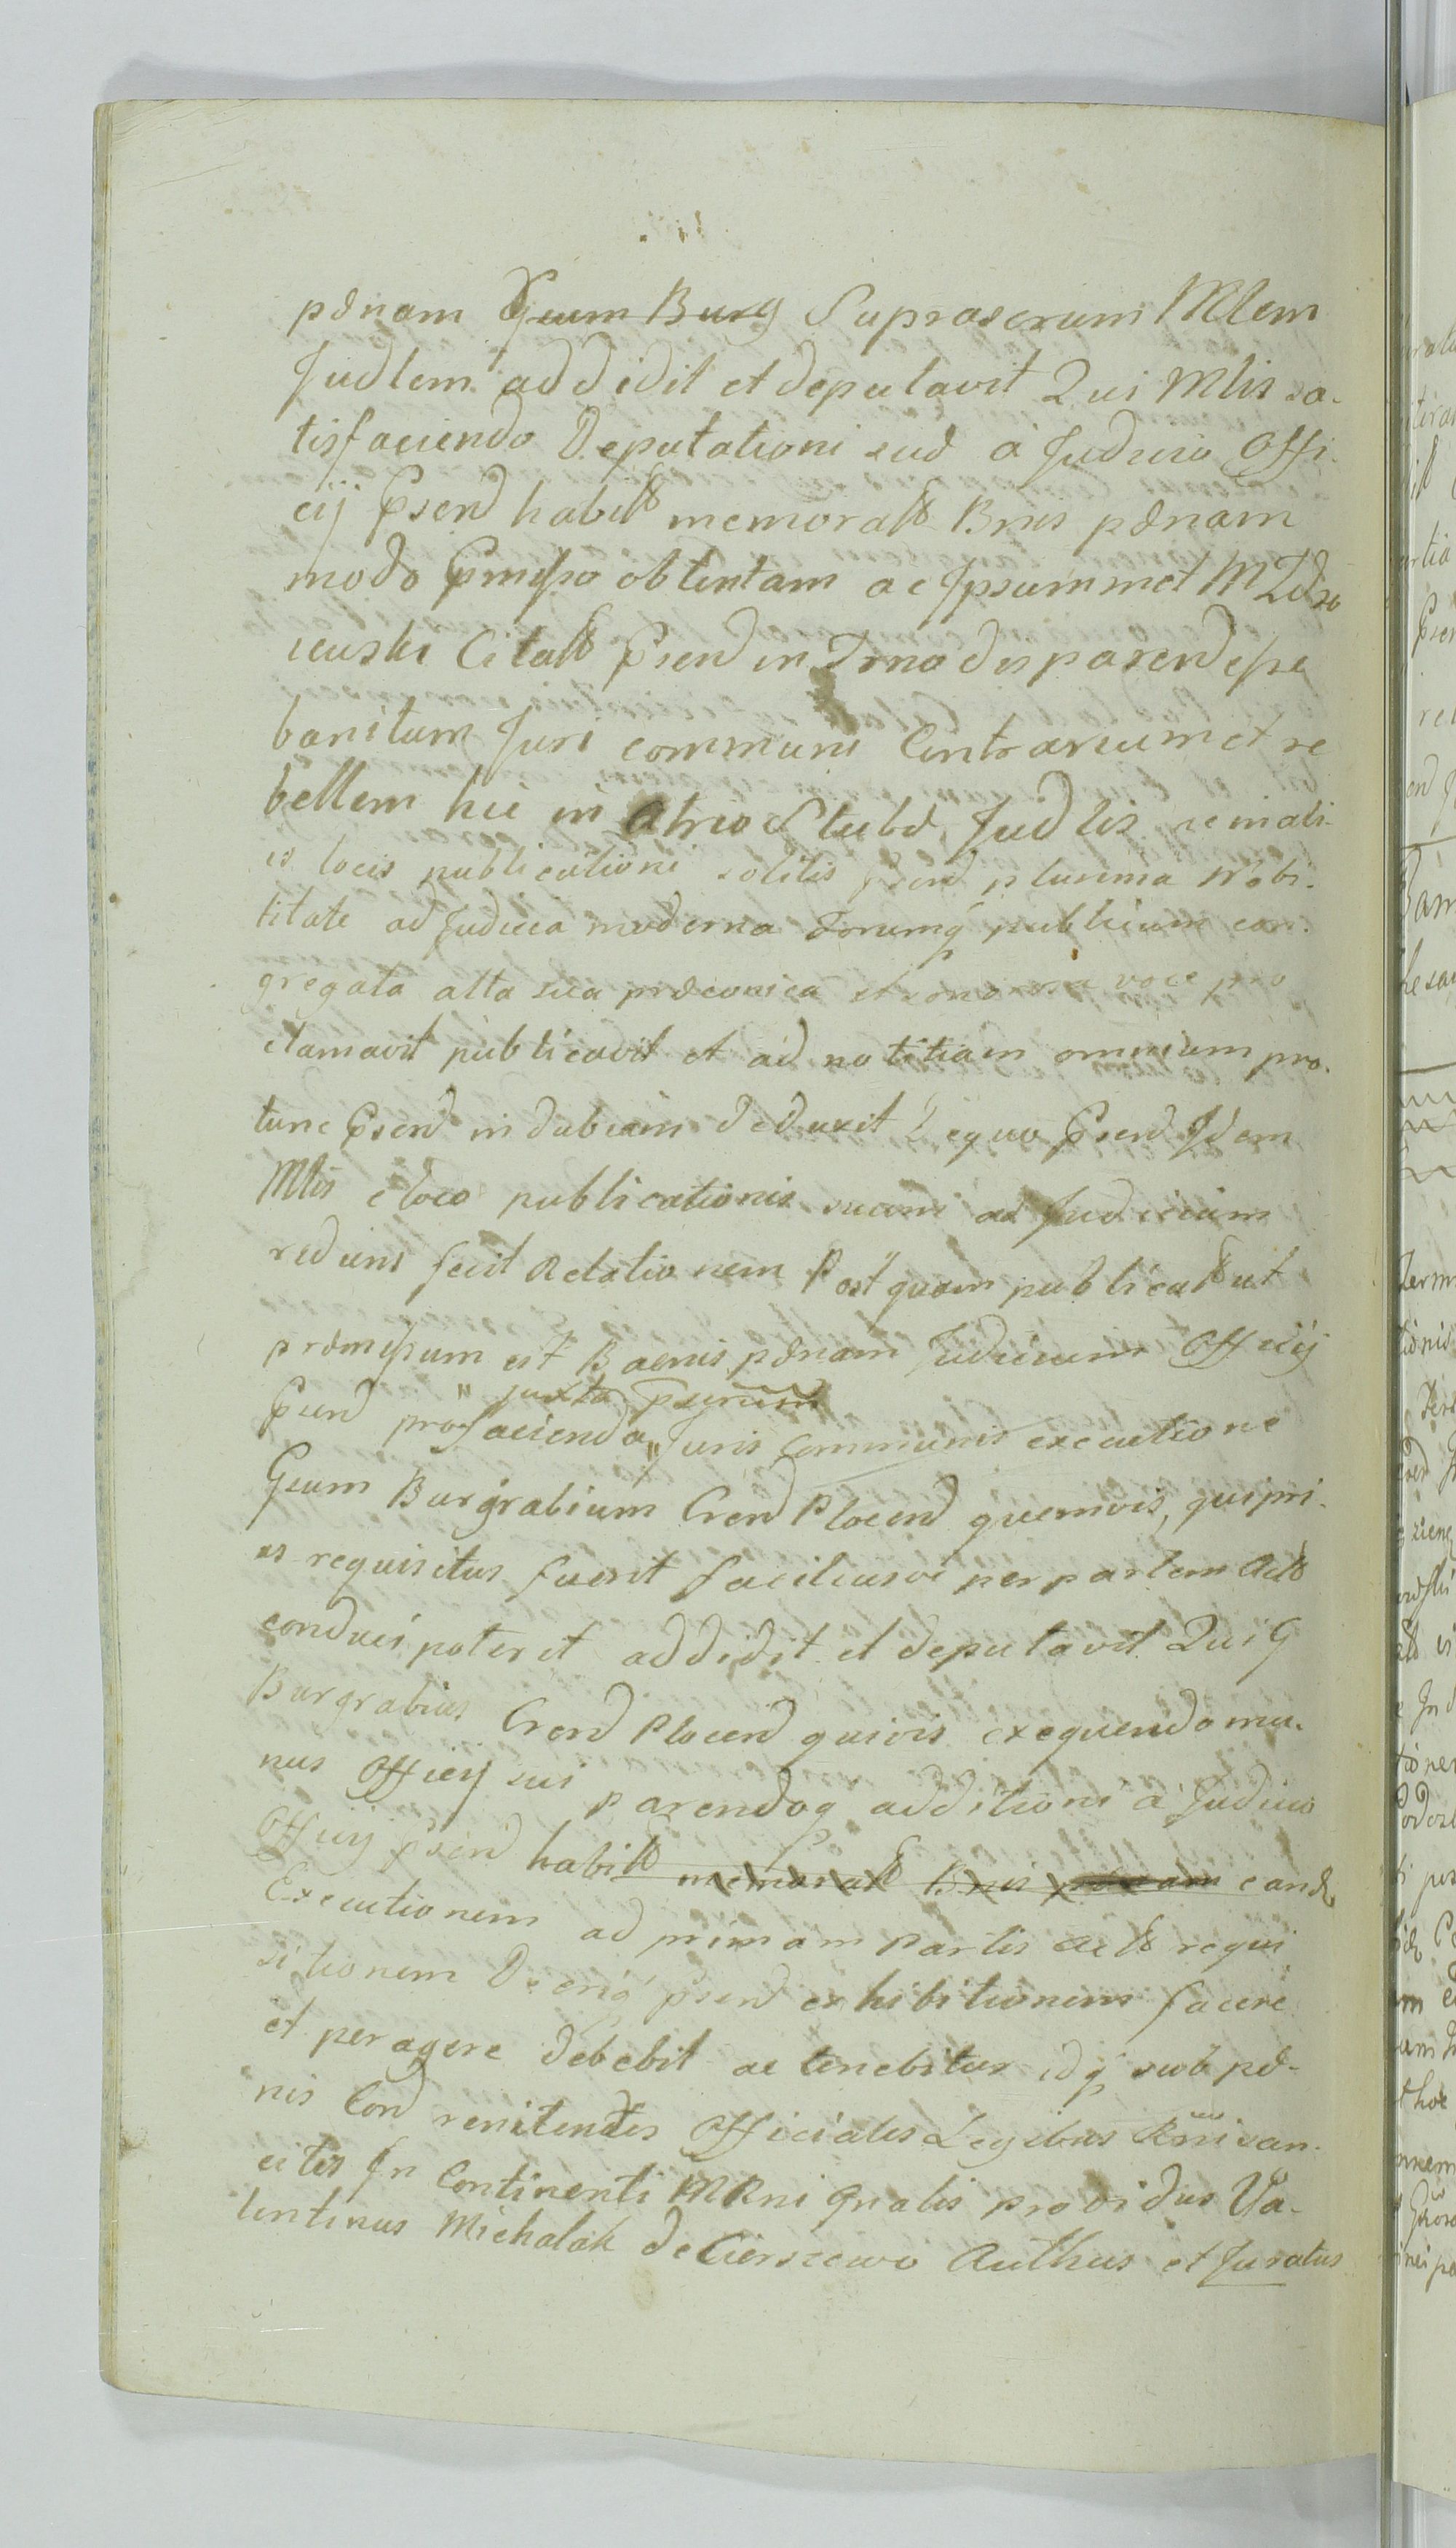 pænam Gsum Burg Suprascrum Mlem
Judlem addidit et deputavit Qui Mlis sa-
tisfaciendo Deputationi suæ a Judicio Offi-
cij Psend habitt memoratt Bnis pænam
modo Pmisso obtentam ac Ipsummet M Zdro
iewski Citatt Psend in Trno disparend esse
banitum Juri communi Contrarium et re
bellem hic in Atrio Stubæ Judlis
is locis publicationi solitis Psend plurima Nobi-
litate ad Judicia moderna forumq publicum con-
gregata alta sua præconica et sonorosa voce pro
clamavit publicavit et ad notitiam omnium pro-
tunc Psend indubiam deduxit Dequo Psend Idem
Mlis e loco publicationis suum ad Judicium
rediens fecit Relationem Postquam publicatt ut
præmissum est Baenis pænam Judicium Officij
" juxta psrum
Psend pro facienda " Juris Communis executione
Gsum Burgrabium Crend Plocend quemvis, qui pri-
us requisitus fuerit faciliusve per partem Actt
conduci poterit addidit et deputavit Qui G
Burgrabius Crend Plocend quivis exequendo mu-
nus Officij sui parendoq additioni a Judicio
Officij Psend habitt memoratt Bnis pænam eand
Executionem ad primam Partis Actt requi
sitionem Decriq psend exhibitionem facere
et peragere debebit ac tenebitur idq sub pæ-
nis Cond renitentes Officiales Legibus Rni san-
citis In Continenti MRni Gnalis providus Va-
lentinus Michalak de Cierszewo Authus et Juratus